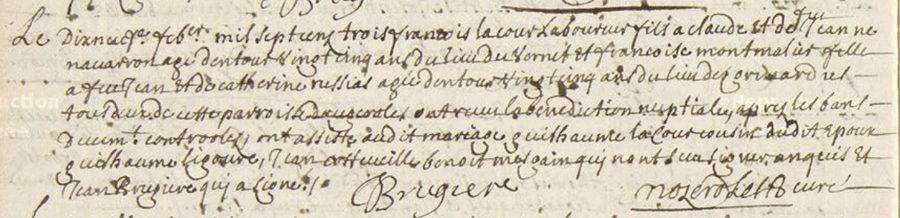 Le Dixneuf^e feb^er mil sept cens trois francois lacour Laboureur fils a claude et de Jeanne
navarron agé dentour vingt cinq ans du lieu de Vornit et francoise montmalier fille
a feu Jean et de catherine russias agé dentour vingt cinq ans du lieu de
tous deux de cette parroisse ont receu la bénédiction nuptiale apres les bans
Deuem^t controolés, ont assisté audit mariage guilhaume lacour cousin dudit Epoux
guilhaume ligoure, Jean cotteveille benoit qui nont sceu signer enquis Et
Jean Brugiere qui a signé.
Brugiere curé